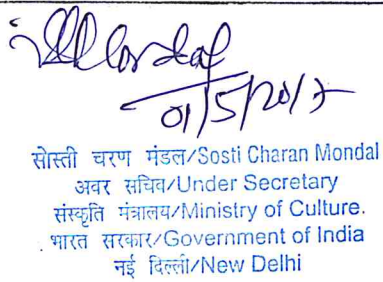 01/5/2017
सोस्ती चरण मंडल/Sosti Charan Mondal
अवर सचिव/Under Secretary
संस्कृति मंत्रालय/Ministry of Culture.
भारत सरकार/Government of India
नई दिल्ली/New Delhi